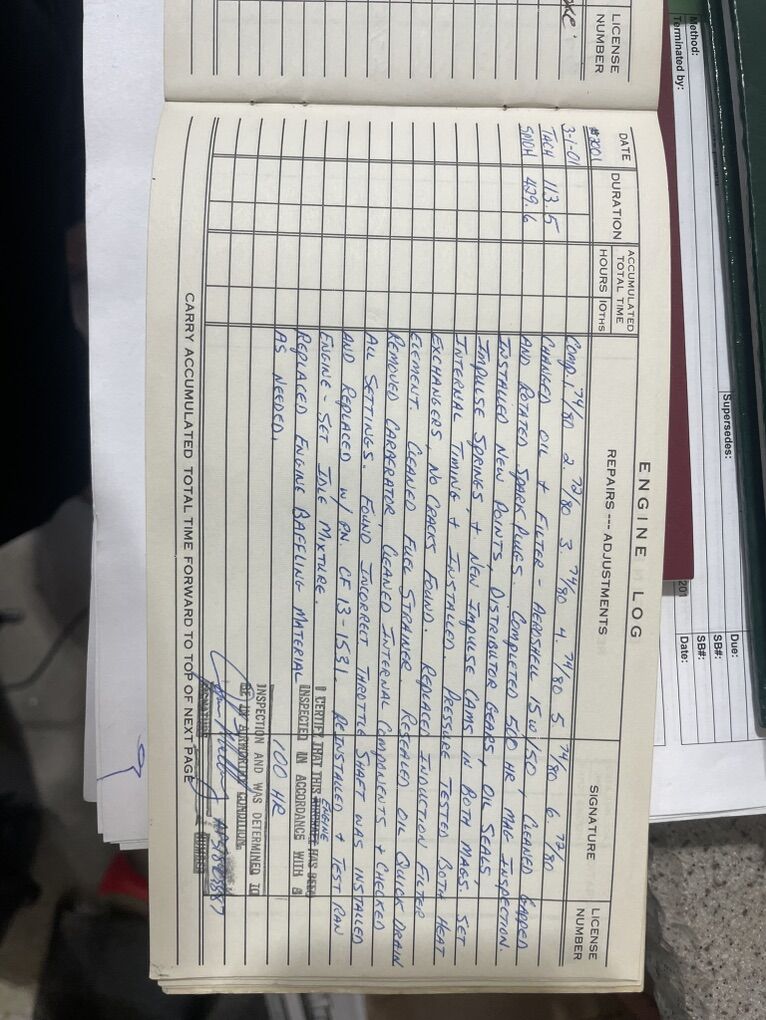 LICENSE
NUMBER
Method:
Terminated by:
Supersedes:
Due:
SB#:
SB#:
Date:
201
ENGINE LOG
DATE
DURATION
ACCUMULATED
TOTAL TIME
HOURS 10THS
REPAIRS --- ADJUSTMENTS
SIGNATURE
LICENSE
NUMBER
#2001
3-1-01 COMP 1. 74/80 2. 72/80 3. 74/80 4. 74/80 5 74/80 6. 72/80
TACH 113.5 CHANGED OIL + FILTER - AEROSHELL 15W150, CLEANED GAPPED
SMOH 429.6 AND ROTATED SPARK PLUGS. COMPLETED 500 HR MAG INSPECTION.
INSTALLED NEW POINTS, DISTRIBUTOR GEARS, OIL SEALS,
IMPULSE SPRINGS, + NEW IMPULSE CAMS IN BOTH MAGS. SET
INTERNAL TIMING + INSTALLED. PRESSURE TESTED BOTH HEAT
EXCHANGERS, NO CRACKS FOUND. REPLACED INDUCTION FILTER
ELEMENT. CLEANED FUEL STRAINER. RESEALED OIL QUICK DRAIN
REMOVED CARBERATOR, CLEANED INTERNAL COMPONENTS + CHECKED
ALL SETTINGS. FOUND INCORRECT THROTTLE SHAFT WAS INSTALLED
AND REPLACED W/ PN. CF 13-1531. REINSTALLED + TEST RAN
ENGINE - SET IDLE MIXTURE.
REPLACED ENGINE BAFFLING MATERIAL
AS NEEDED.
I CERTIFY THAT THIS AIRCRAFT HAS BEEN
ENGINE
INSPECTED IN ACCORDANCE WITH A
100 HR
INSPECTION AND WAS DETERMINED TO
BE IN AIRWORTHY CONDITION.
SIGNATURE
NUMBER
CARRY ACCUMULATED TOTAL TIME FORWARD TO TOP OF NEXT PAGE